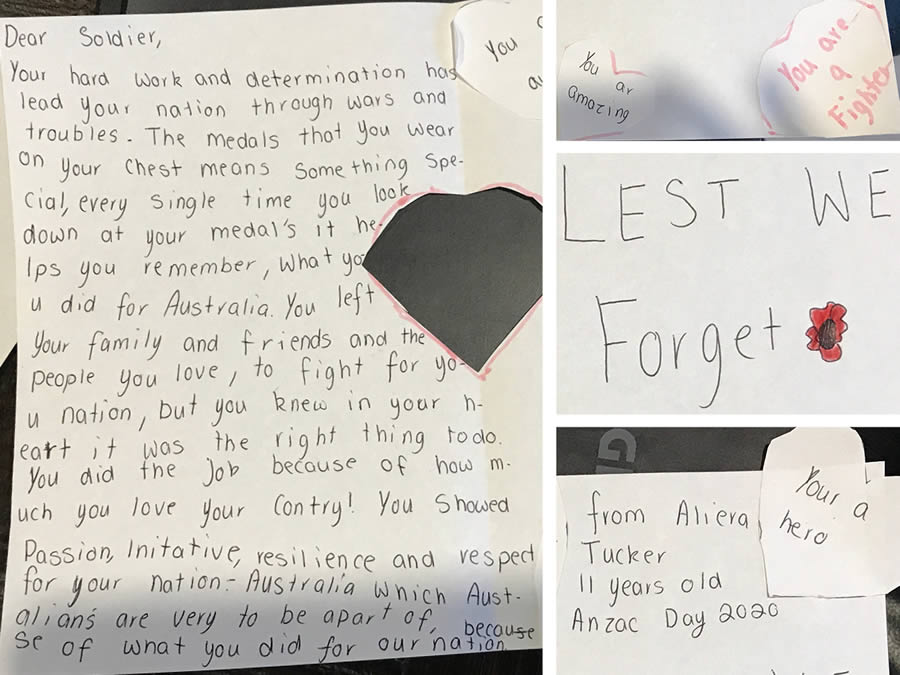 Dear Soldier,
Your hard work and determination has
lead your nation through wars and
troubles. The medals that you wear
on your chest means something spe-
cial, every single time you look
down at your medal's it he-
lps you remember, what yo
u did for Australia. You left
your family and friends and the
people you love, to fight for yo-
u nation, but you knew in your h-
eart it was the right thing to do.
You did the job because of how m-
uch you love your contry! You showed
Passion, Initative, resilience and respect
for your nation - Australia which Aust-
alian's are very to be apart of, because
se of what you did for our nation.
You
You
ar
amazing
You are
a
Fighter
LEST WE
Forget
from Aliera
Tucker
11 years old
Anzac Day 2020
Your a
hero